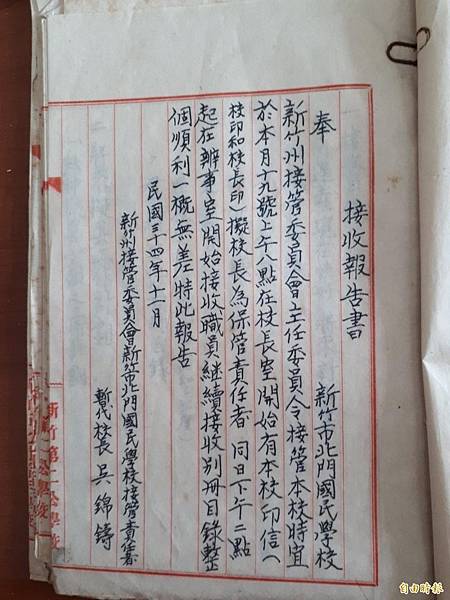 接收報告書
新竹市北門國民學校
奉
新竹州接管委員會主任委員令接管本校時宜
於本月十九號上午八點在校長室開始有本校印信（
校印和校長印）擬校長為保管責任者 同日下午二點
起在辦事室開始接收職員繼續接收別冊目錄整
個順利一概無差特此報告
民國三十四年十一月
新竹州接管委員會新竹市北門國民學校接管責任者
暫代校長 吳錦鑄
新竹第二公學校
自由時報